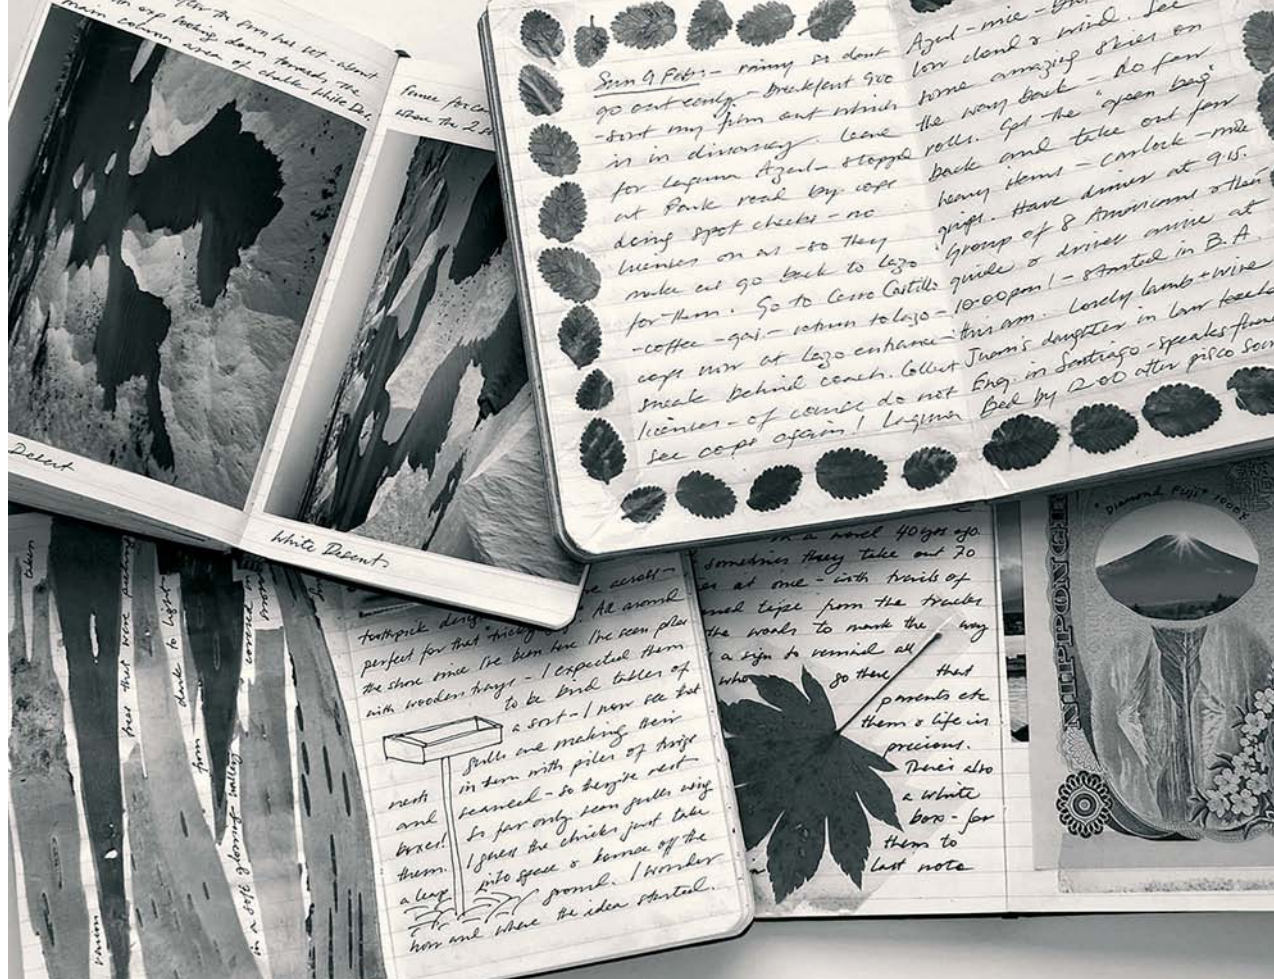 after the sun has set - about
looking down towards the
main area of chalk White Des.
Desert
where the 2
White Deserts
Sun 9 Feb - rainy so don't
go out early - breakfast 9.00
- sort my film out which
is in disarray. Leave
for Laguna Azul - stopped
at Park road by cops
doing spot checks - no
licenses on us - so they
make us go back to Lazo
for them. Go to Cerro Castillo
- coffee - gas - return to Lazo -
cops now at Lazo entrance -
sneak behind coach. Collect
licenses - of course do not
see cops again! Laguna
Azul - nice -
low cloud & wind. See
some amazing skies on
the way back - do few
rolls. Get the "green bag"
back and take out few
heavy items - camlock - mole
grips. Have dinner at 9.15.
Group of 8 Americans & their
guide & driver arrive at
10.00pm! - started in B.A.
this am. Lovely lamb + wine
Juan's daughter in law teaches
Eng. in Santiago - speaks fluent
Bed by 12.00 after pisco sour
taken
trees that were peeling
dark to light
from
covered in
in a soft glowing valley
toothpick
perfect for that tricky All around
the shore since I've been here I've seen poles
with wooden trays - I expected them
to be bird tables of
a sort - I now see that
gulls are making their
nests in them with piles of dried
and seaweed - so they're nest
boxes! So far only seen gulls using
them. I guess the chicks just take
a leap into space & bounce off the
ground. I wonder
how and where the idea started.
in a novel 40 yrs ago.
sometimes they take out 70
at one - with trails of
tape from the tracks
the woods to mark the way
a sign to remind all
who go there that
parents etc
them & life is
precious.
There's also
a white
box - for
them to
last note
"Diamond Fuji" 1000¥
NIPPON GINKO